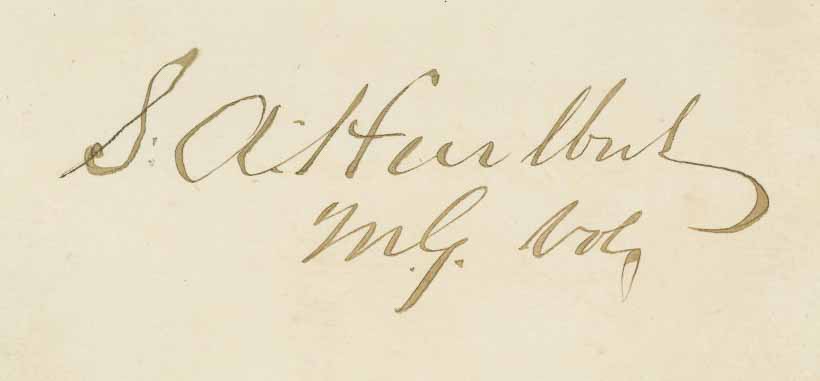 S. A. Hurlbut
M.G. Vols